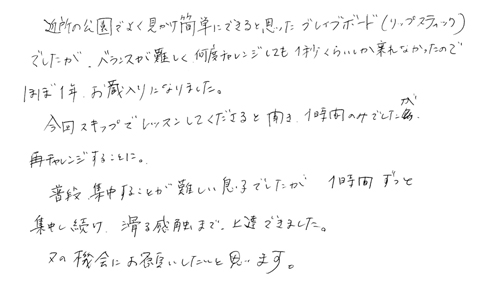 近所の公園でよく見かけ簡単にできると思ったブレイブボード(リップスティック)
でしたが、バランスが難しく何度チャレンジしても1秒くらいしか乗れなかったので
ほぼ1年、お蔵入りになりました。
今回スキップでレッスンしてくださると聞き、1時間のみでしたが、
再チャレンジすることに。
普段、集中することが難しい息子でしたが 1時間ずっと
集中し続け、滑る感触まで、上達できました。
又の機会にお願いしたいと思います。